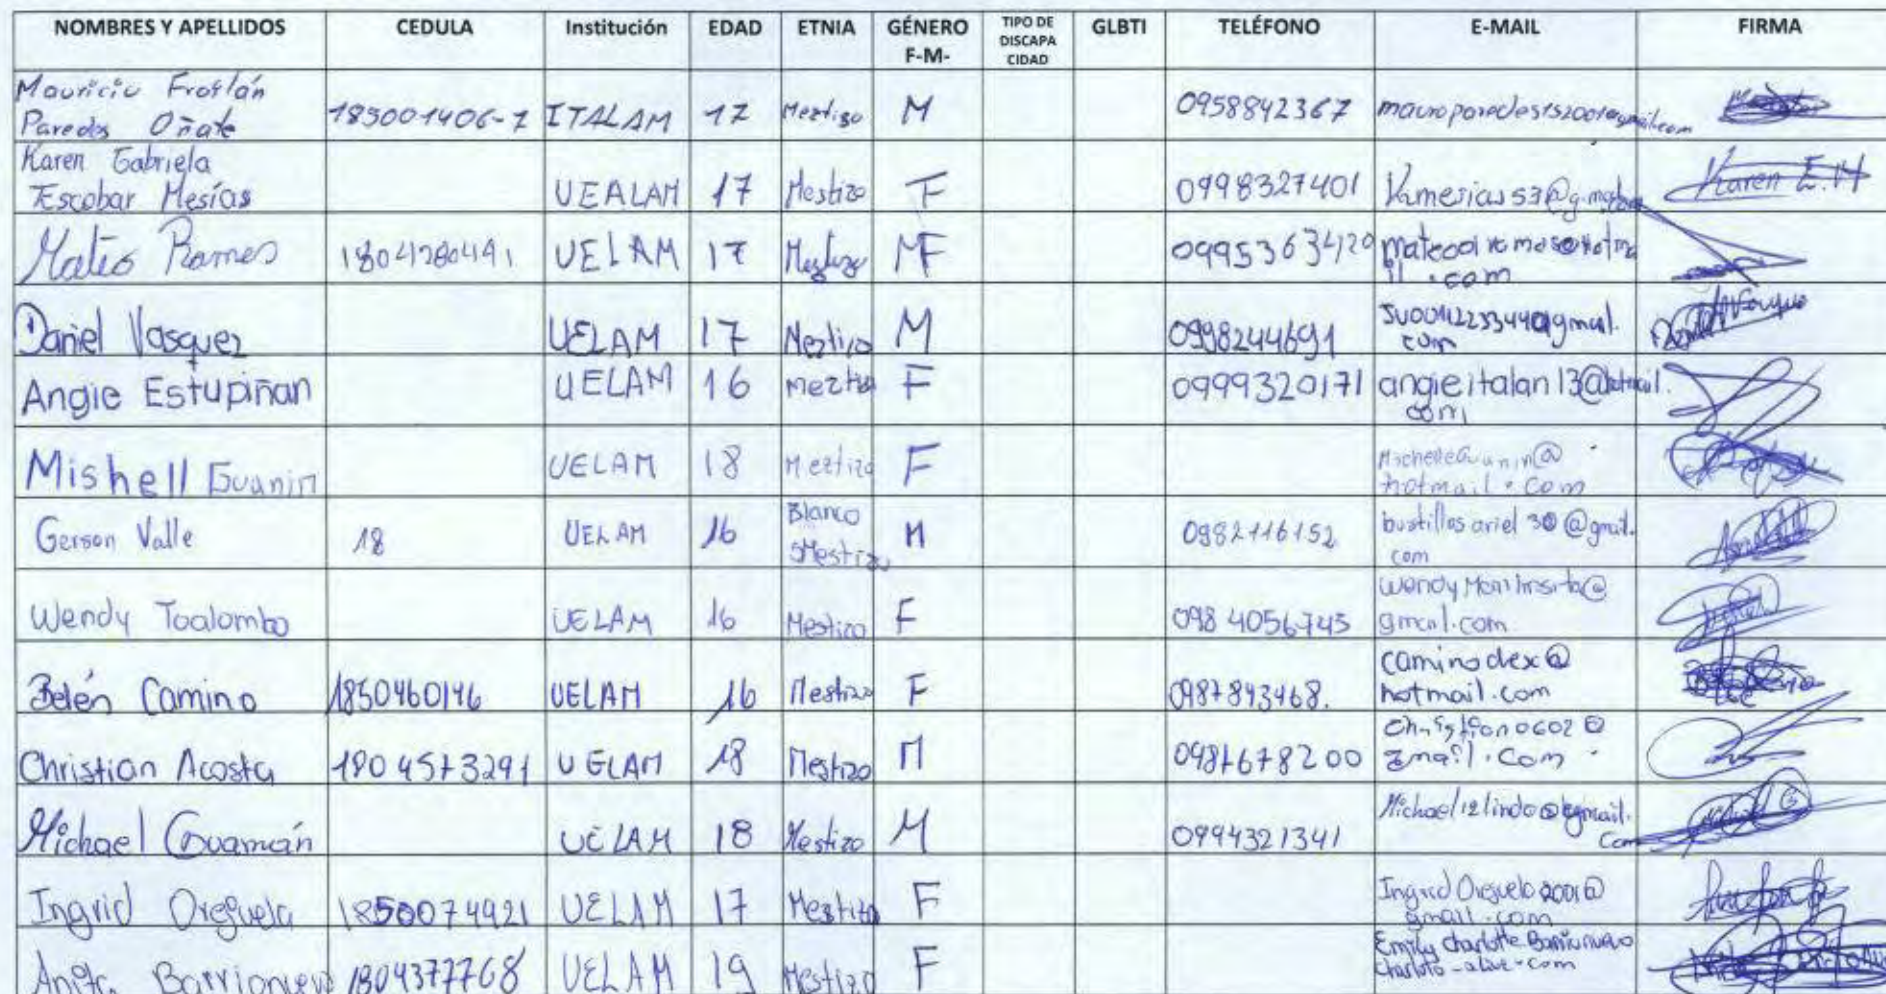 NOMBRES Y APELLIDOS CEDULA Institución EDAD ETNIA GÉNERO F-M- TIPO DE DISCAPACIDAD GLBTI TELÉFONO E-MAIL FIRMA
Mauricio Froilán Paredes Oñate 185001406-7 ITALAM 17 Meztizo M 0958842367
Karen Gabriela Escobar Mesías UEALAM 17 Mestizo F 0998327401 Karen E.M
Mateo Ramos UELAM 17 MF 0995363420
Daniel Vasquez UELAM 17 Meztizo M 0998244691
Angie Estupiñan UELAM 16 F 0999320171 angieitalan13@hotmail.com
Mishell Guanin UELAM 18 Meztizo F hotmail.com
Gerson Valle 18 UELAM 16 Blanco Mestizo M 0982116152 bustillosariel30@gmail.com
Wendy Toalombo UELAM 16 Mestizo F 0984056745 gmail.com
Belén Camino 1850460146 UELAM 16 Mestizo F 0987843468. caminodex@hotmail.com
Christian Acosta 1804573291 UELAM 18 Mestizo M 0981678200 Christian0602@gmail.com
Michael Guamán UELAM 18 Mestizo M 0994321341
Ingrid Oreguela 1850074921 UELAM 17 Mestizo F Ingrid Oreguela2001@gmail.com
Anita Barrionuevo 1804377768 UELAM 19 Mestizo F Emily Charlotte Barrionuevo